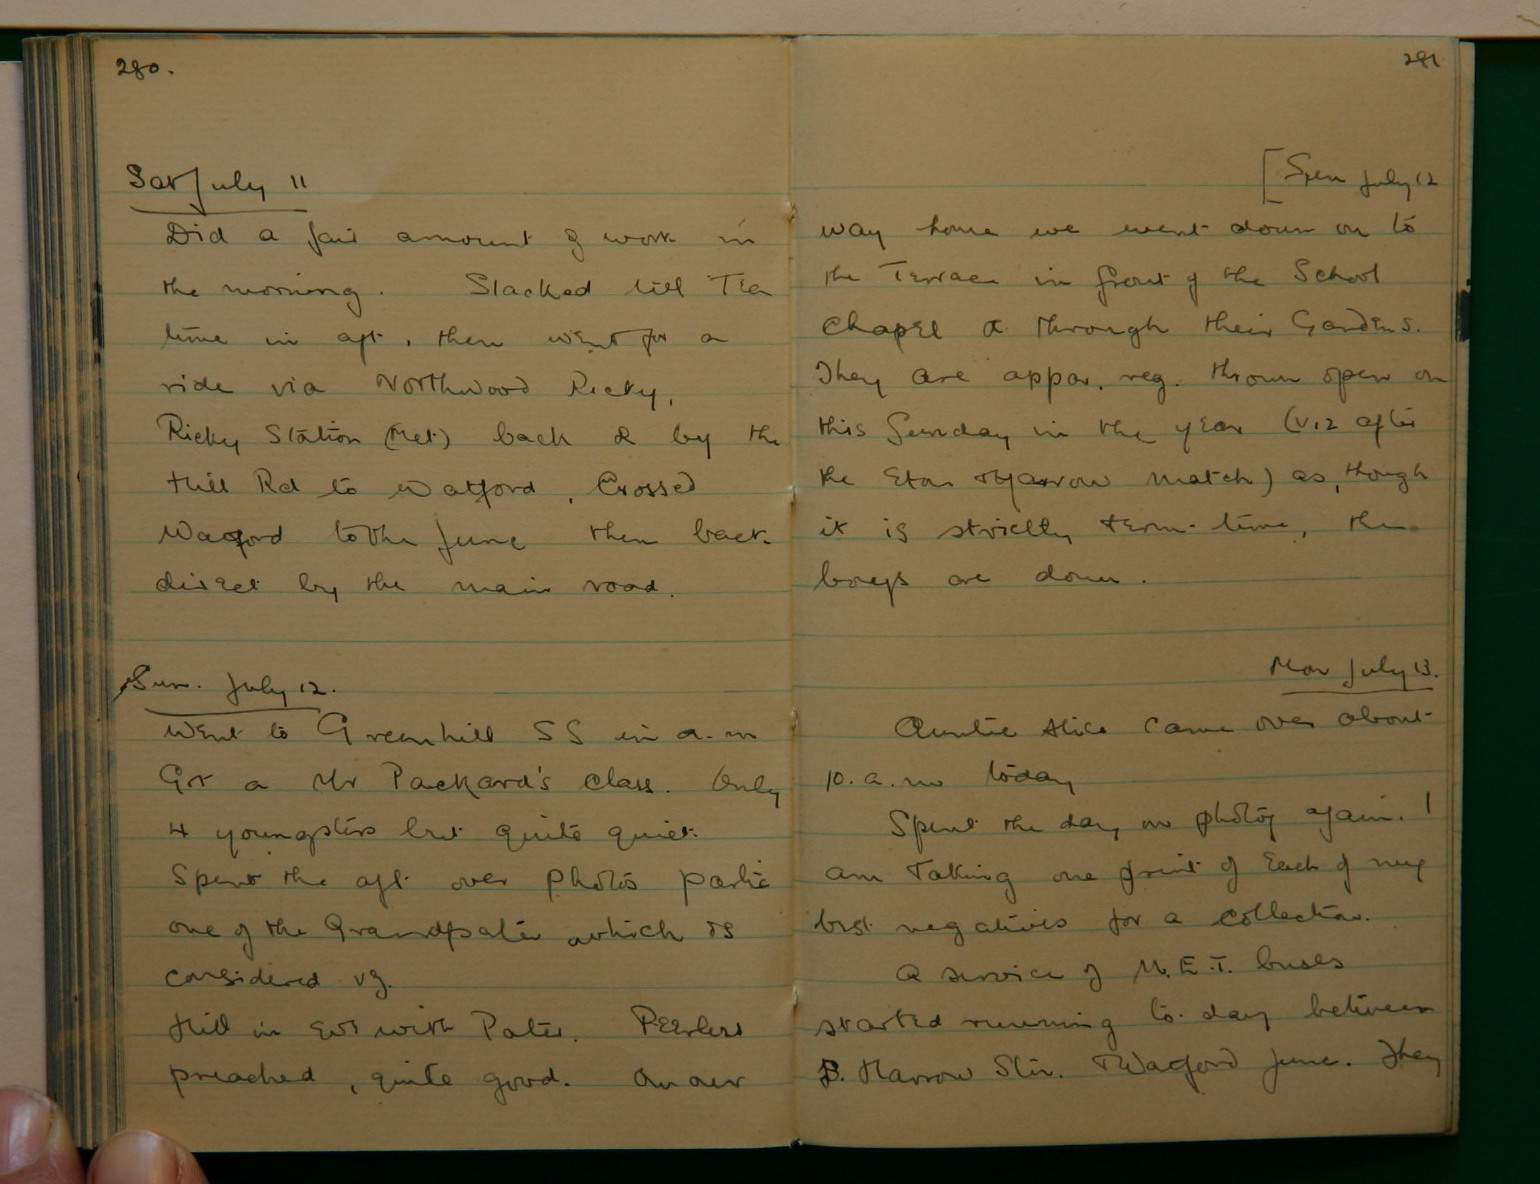 280.
Sat July 11
Did a fair amount of work in
the morning. Slacked till Tea
time in aft, then went for a
ride via Northwood Ricky,
Ricky Station (Met) back & by the
Hill Rd to Watford, Crossed
Watford to the Junc then back
direct by the main road.
Sun. July 12.
Went to Greenhill SS in a.m
Got a Mr Packard's class. Only
4 youngsters but quite quiet.
Spent the aft over photos partic
one of the Grandpater which is
considered vg.
Hill in eve with Pater. Peerless
preached, quite good. On our
281
[Sun July 12
way home we went down on to
the Terrace in front of the School
Chapel & through their Gardens.
They are appar. reg. thrown open on
this Sunday in the year (viz after
the Eton & Harrow match) as, though
it is strictly term-time, the
boys are down.
Mon July 13.
Auntie Alice came over about
10. a.m today
Spent the day on photog again. I
am taking one print of each of my
best negatives for a collection.
A service of M.E.T. buses
started running to-day between
S. Harrow Stn. & Watford Junc. They